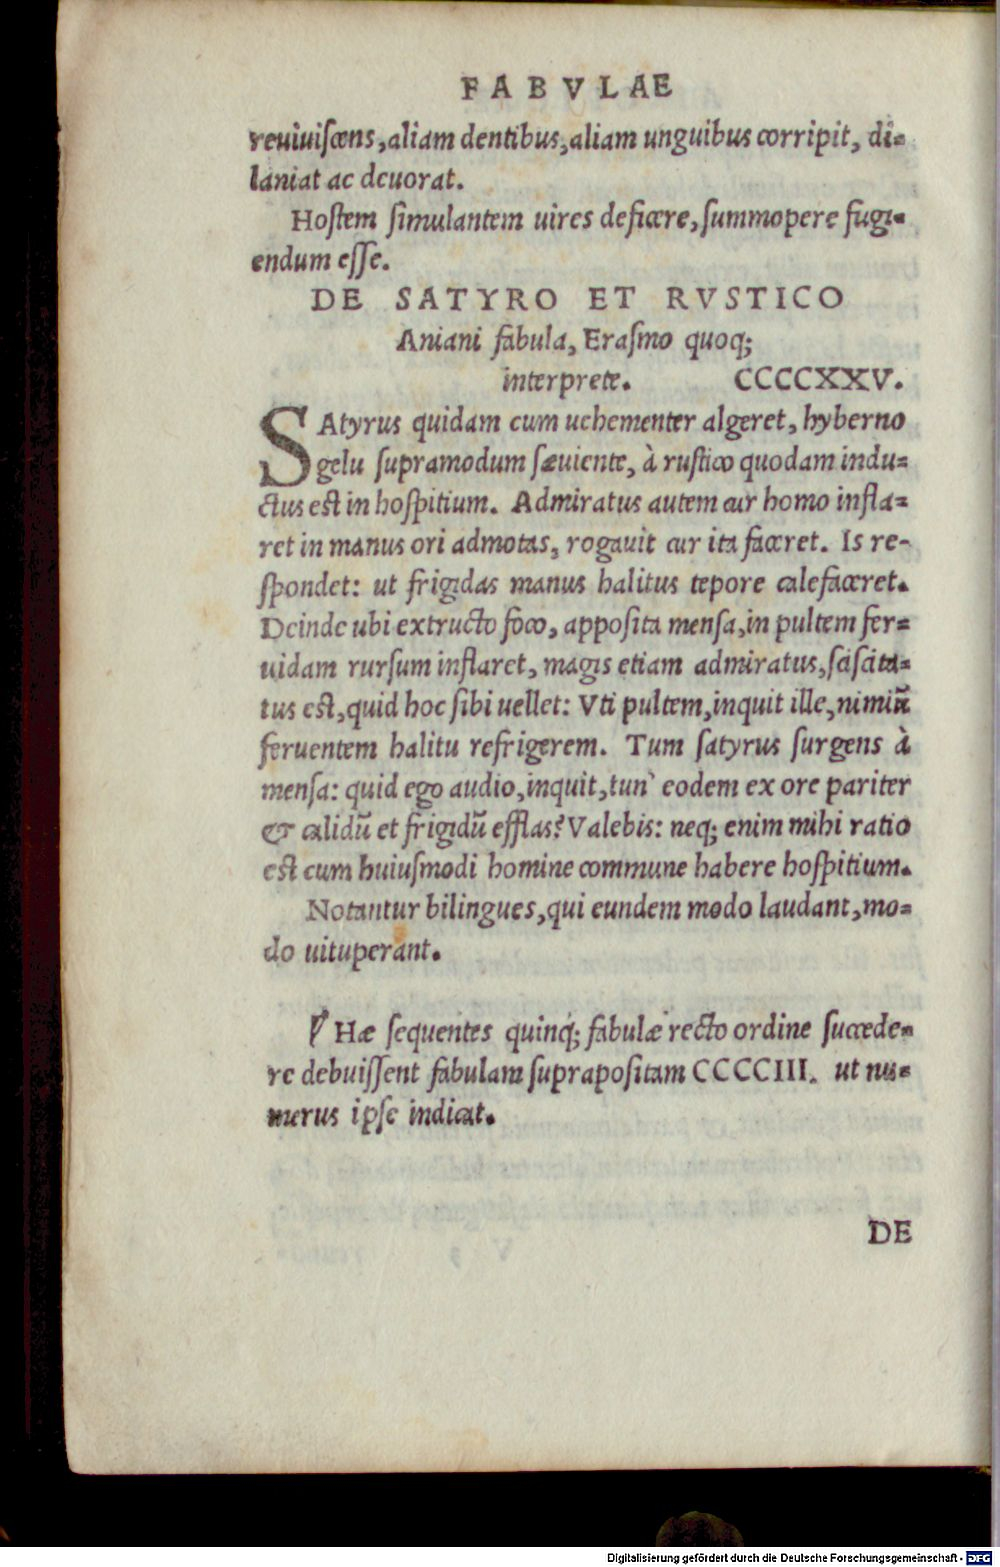 FABVLAE
reuiuiscens, aliam dentibus, aliam unguibus corripit, di-
laniat ac deuorat.
Hostem simulantem uires deficere, summopere fugi-
endum esse.
DE SATYRO ET RVSTICO
Aniani fabula, Erasmo quoq;
interprete. CCCCXXV.
SAtyrus quidam cum uehementer algeret, hyberno
gelu supramodum sæuiente, à rustico quodam indu-
ctus est in hospitium. Admiratus autem cur homo infla-
ret in manus ori admotas, rogauit cur ita faceret. Is re-
spondet: ut frigidas manus halitus tepore calefaceret.
Deinde ubi extructo foco, apposita mensa, in pultem fer-
uidam rursum inflaret, magis etiam admiratus, sciscita-
tus est, quid hoc sibi uellet: Vti pultem, inquit ille, nimiũ
feruentem halitu refrigerem. Tum satyrus surgens à
mensa: quid ego audio, inquit, tun' eodem ex ore pariter
& calidũ et frigidũ efflas? Valebis: neq; enim mihi ratio
est cum huiusmodi homine commune habere hospitium.
Notantur bilingues, qui eundem modo laudant, mo-
do uituperant.
Hæ sequentes quinq; fabulæ recto ordine succede-
re debuissent fabulam suprapositam CCCCIII. ut nu-
merus ipse indicat.
DE
Digitalisierung gefördert durch die Deutsche Forschungsgemeinschaft - DFG